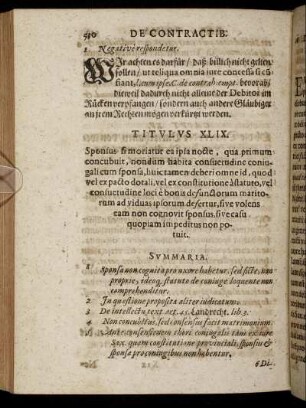 510 DE CONTRACTIB.
1 Negativè respondetur.
WIr achten es darfür / daß billich nicht gelten
sollen / ut reliqua omnia jure concessa si cu-
bevorab /
dieweil dadurch nicht alleine der Debitor im
Rücken vervhangen / sondern auch andere Gläubiger
an jrem Rechten mögen verkürtzt werden.
TITULUS XLIX.
Sponsus si moriatur ea ipsa nocte, qua primum
concubuit, nondum habita consuetudine conju-
gali cum sponsa, huic tamen deberi omne id, quod
vel ex pacto dotali, vel ex constitutione à statuto, vel
ex consuetudine loci è bonis defunctorum marito-
rum ad viduas ipsorum defertur, sive volens
eam non cognovit sponsus, sive casu
quopiam impeditus non po-
tuit.
SUMMARIA.
1 Sponsa non cognita pro uxore habetur, sed fictè, non
propriè, ideoq; statuto de conjuge loquente non
comprehenditur.
2 In quaestione proposita aliter judicatum.
3 De intellectu text. art. 45. Landrecht. lib. 3.
4 Non concubitus, sed consensus facit matrimonium.
5 Ante consensum thori conjugalis tam ex jure
Sax. quàm constitutione provinciali, sponsus &
sponsa pro conjugibus non habentur.
6 Di-